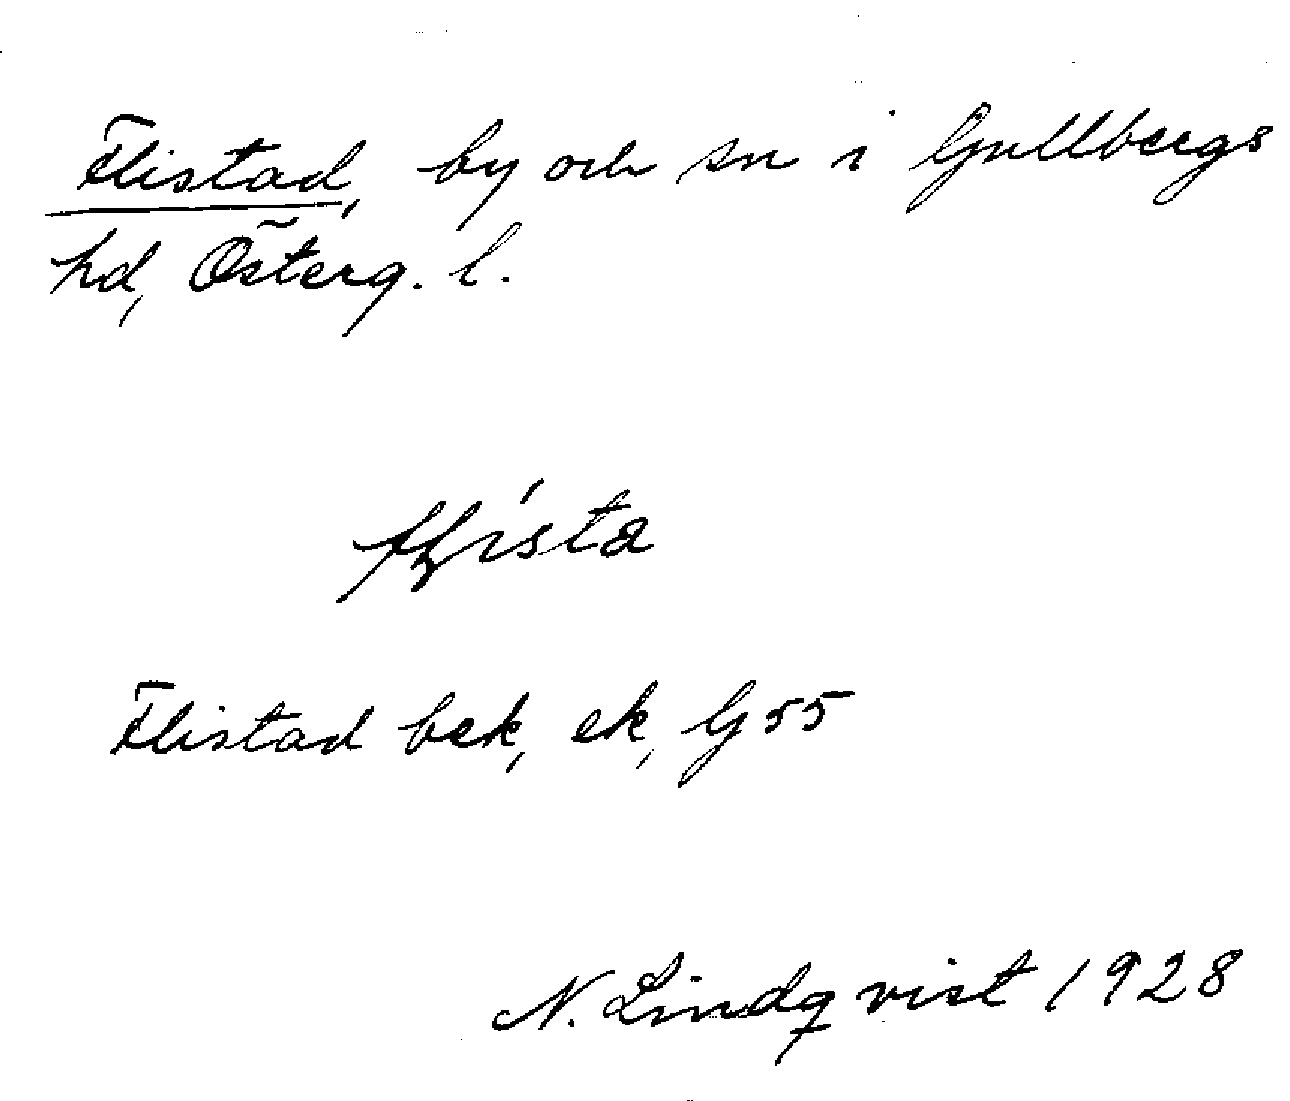 Flistad, by och sn i Gullbergs
hd, Österg. l.
Flistad bek, ek, G 55
N. Lindqvist 1928